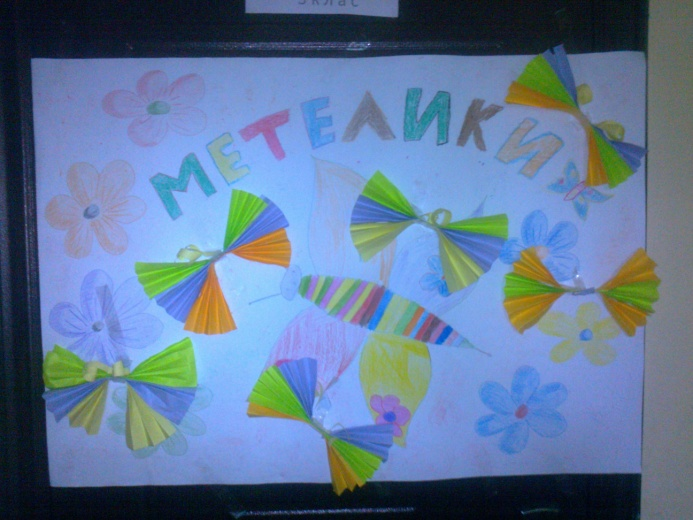 5 клас
МЕТЕЛИКИ